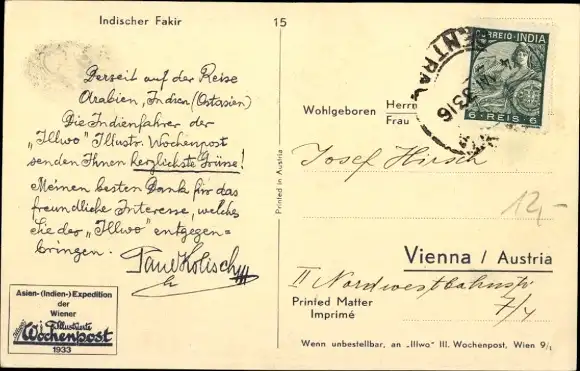 Indischer Fakir
15
Derzeit auf der Reise
Arabien, Indien (Ostasien)
Die Indienfahrer der
"Illwo" Illustr. Wochenpost
senden Ihnen herzlichste Grüsse!
Meinen besten Dank für das
freundliche Interesse, welches
Sie der "Illwo" entgegen-
bringen.
Paul Kolisch
Asien- (Indien-) Expedition
der
Wiener
Illustrierte
Wochenpost
1933
Printed in Austria
CORREIO INDIA
6 REIS 6
CENTRAL
Wohlgeboren Herrn
Frau
Josef Hirsch
12,-
Vienna / Austria
II Nordwestbahnstr
7/4
Printed Matter
Imprimé
Wenn unbestellbar, an "Illwo" Ill. Wochenpost, Wien 9/1